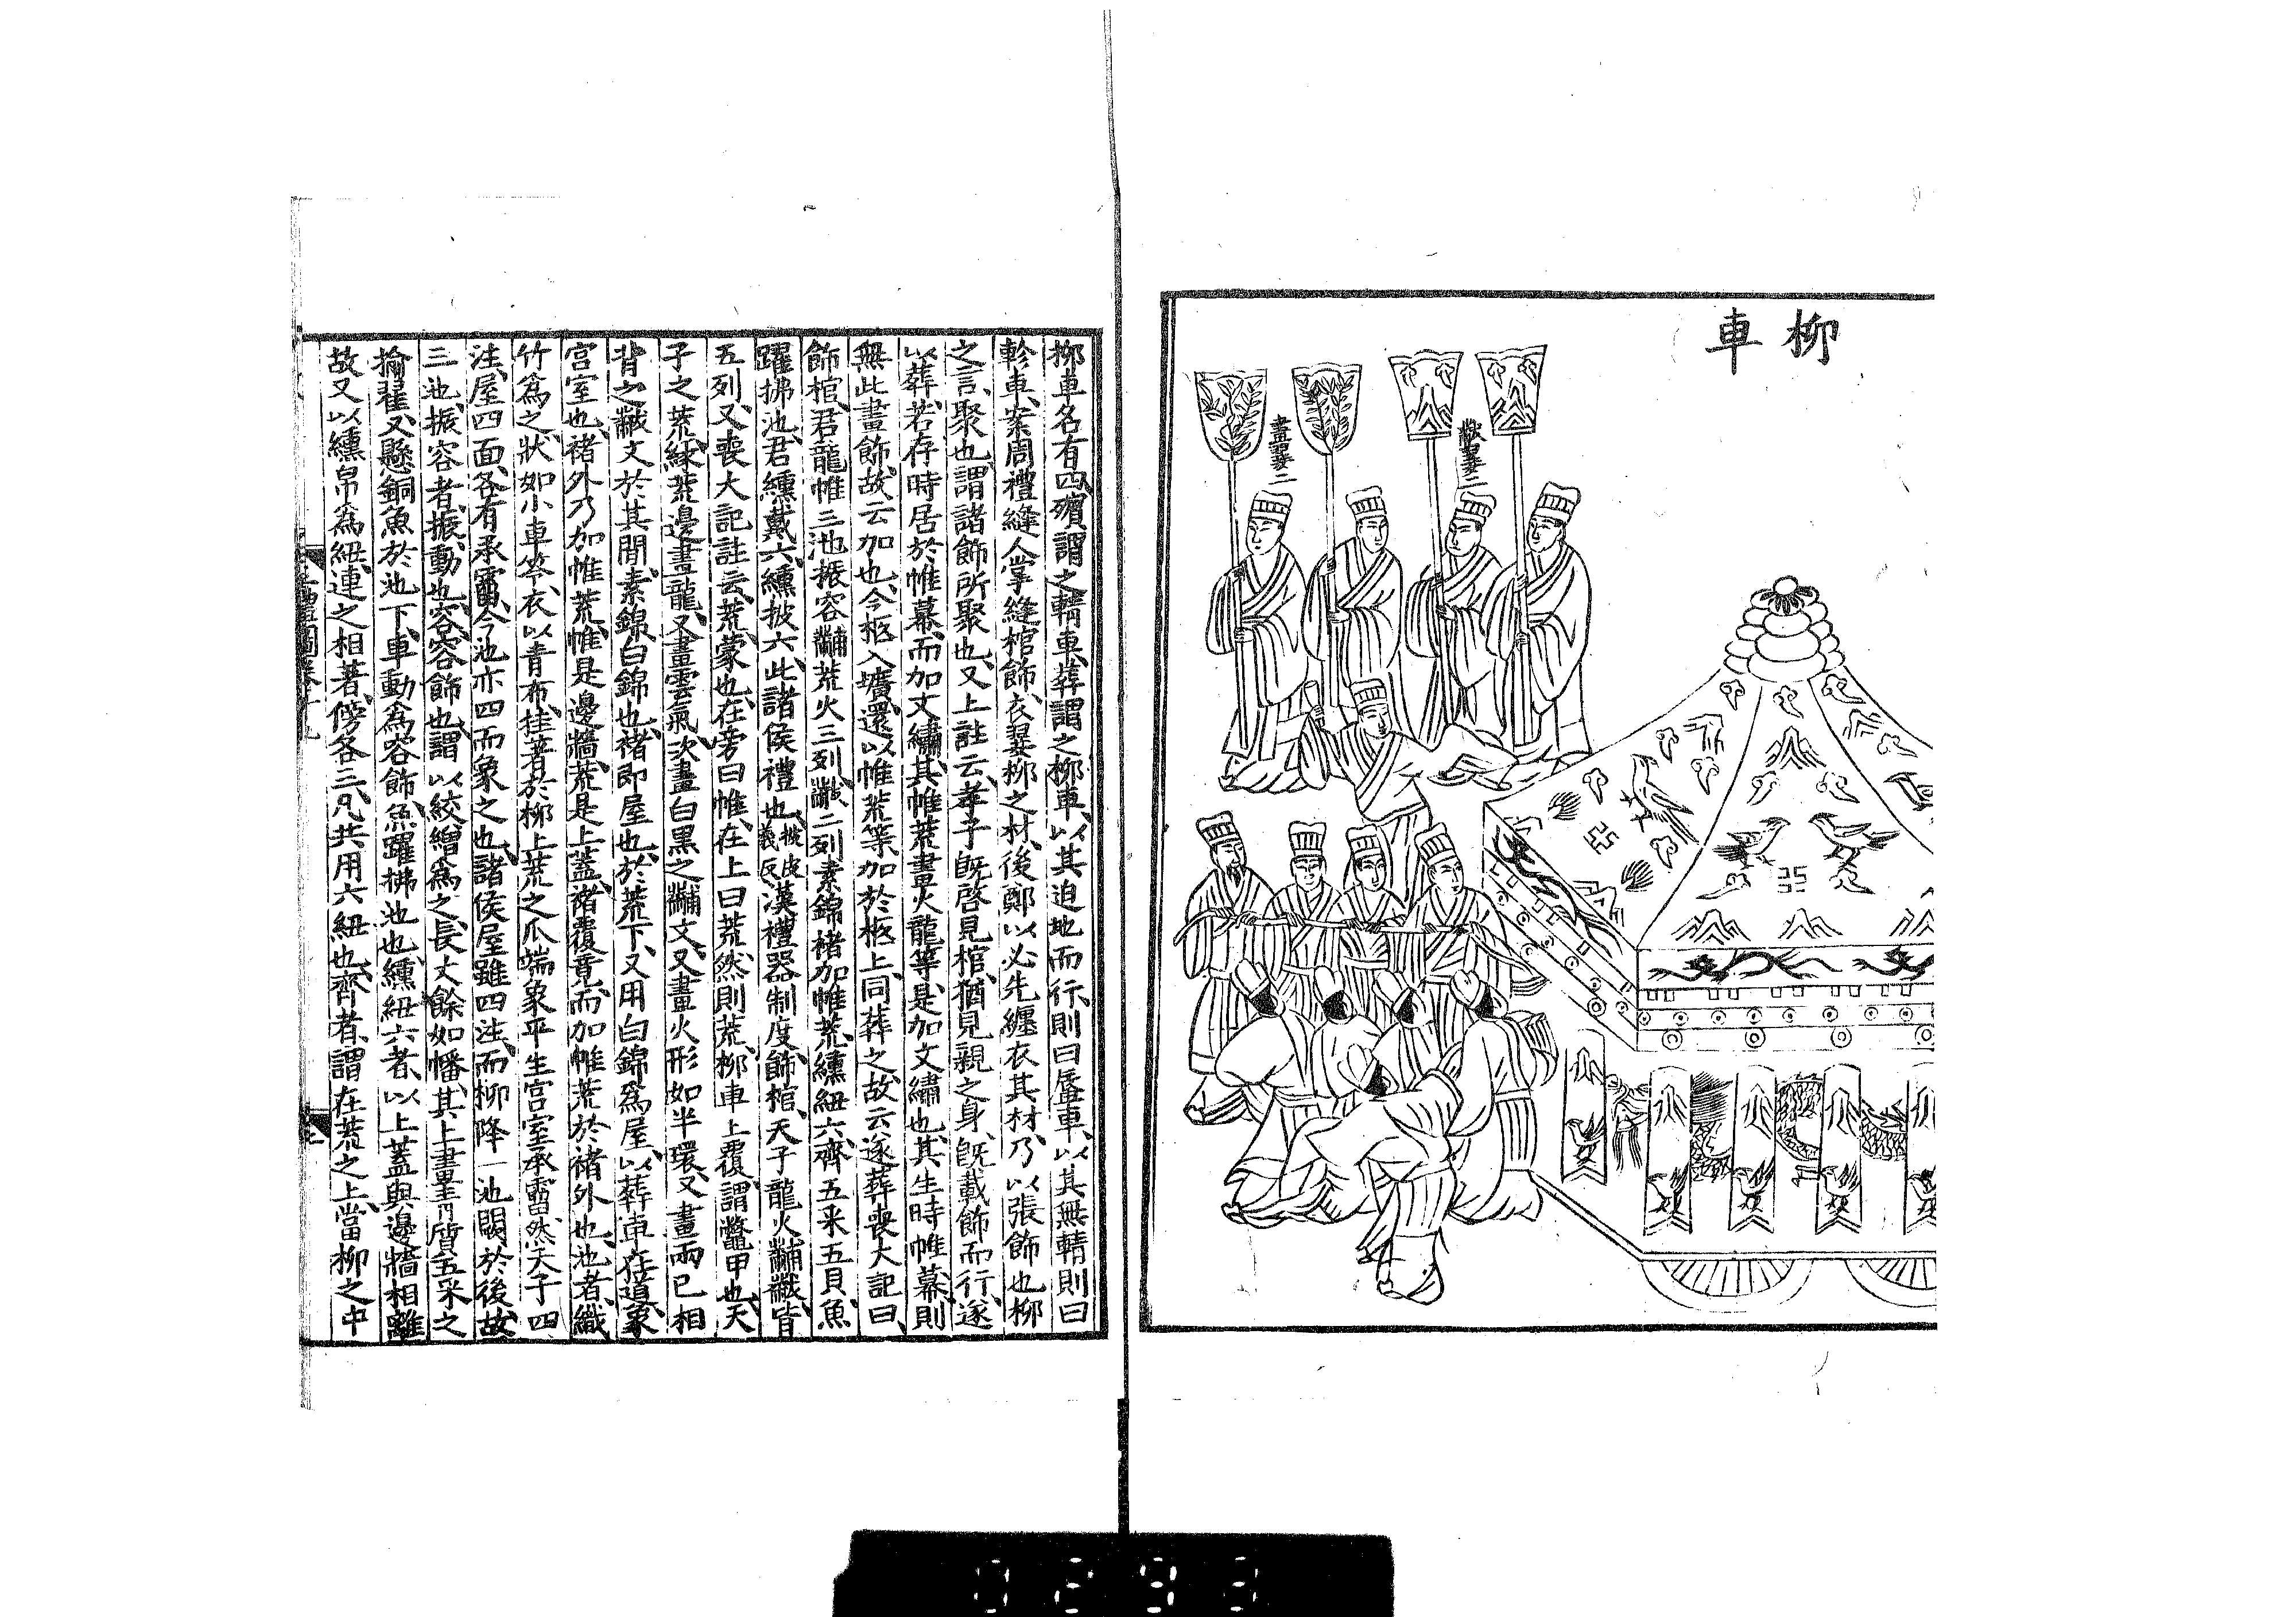 柳車
黻翣二
畫翣二
柳車名有四殯謂之輤車葬謂之柳車以其迫地而行則曰蜃車以其無輤則曰
軫車案周禮縫人掌縫棺飾衣翣柳之材後鄭以必先纒衣其材乃以張飾也柳
之言聚也謂諸飾所聚也又上註云孝子旣啓見棺猶見親之身旣載飾而行遂
以葬若存時居於帷幕而加文繡其帷荒畫火龍等是加文繡也其生時帷幕則
無此畫飾故云加也今柩入壙還以帷荒等加於柩上同葬之故云遂葬喪大記曰
飾棺君龍帷三池振容黼荒火三列黻二列素錦褚加帷荒纁紐六齊五采五貝魚
躍拂池君纁戴六纁披六此諸侯禮也披皮義反漢禮器制度飾棺天子龍火黼黻皆
五列又喪大記註云荒蒙也在旁曰帷在上曰荒然則荒柳車上覆謂鼈甲也天
子之荒緣荒邊畫龍又畫雲氣次畫白黑之黼文又畫火形如半環又畫兩己相
背之黻文於其間素錦白錦也褚即屋也於荒下又用白錦爲屋以葬車在道象
宫室也褚外乃加帷荒帷是邊牆荒是上蓋褚覆竟而加帷荒於褚外也池者織
竹爲之狀如小車笭衣以青布挂著於柳上荒之爪端象平生宫室承霤然天子四
注屋四面各有承霤今池亦四而象之也諸侯屋雖四注而柳降一池闕於後故
三池振容者振動也容容飾也謂以絞繒爲之長丈餘如幡其上畫青質五采之
揄翟又懸銅魚於池下車動爲容飾魚躍拂池也纁紐六者以上蓋與邊牆相離
故又以纁帛爲紐連之相著傍各三凡共用六紐也齊者謂在荒之上當柳之中